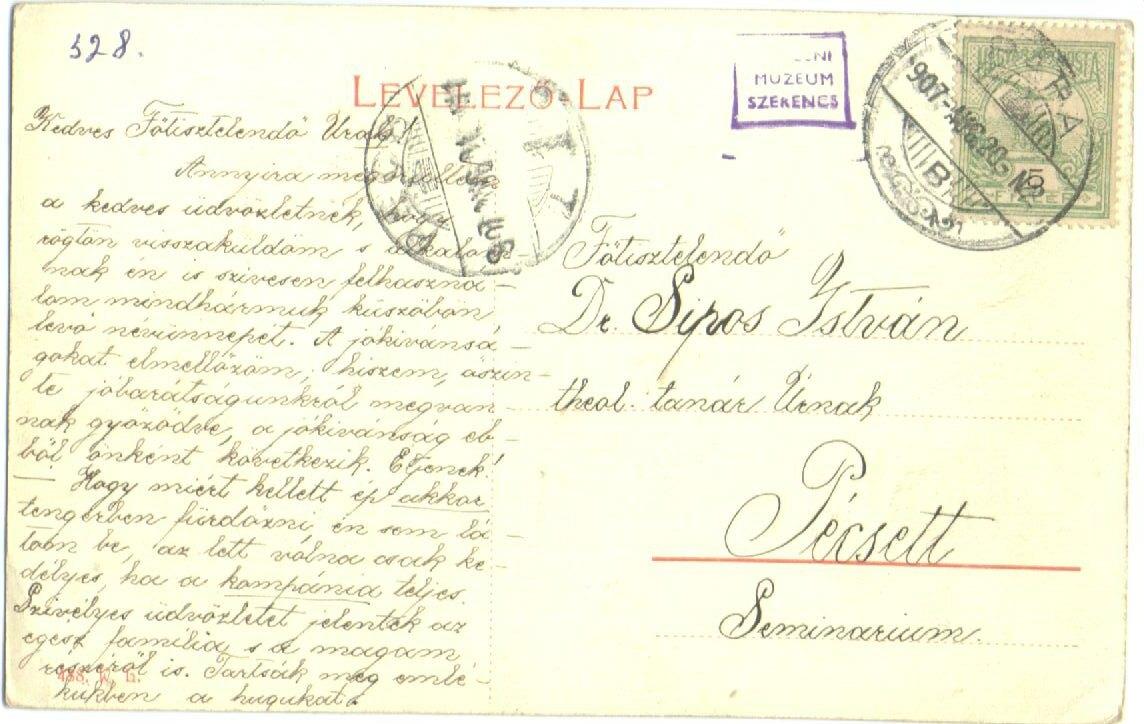 528.
LEVELEZŐ-LAP
MUZEUM
SZERENCS
907 AUG. 20
B
Kedves Főtisztelendő Uraló!
Annyira
a kedves üdvözletnek, hogy
rögtön visszaküldöm s
nak én is szivesen felhaszná-
lom mindhármuk küszöbön
levő névünnepét. A jókivánsá-
gokat elmellőzöm; hiszem, őszin-
te jóbarátságunkról megvan-
nak győződve, a jókivánság eb-
ből önként következik. Éljenek!
— Hogy miért kellett ép akkor
tengerben fürdőzni, én sem lá-
tom be, az lett volna csak ke-
délyes, ha a kompánia teljes.
Szivélyes üdvözletet jelentek az
egész familia s a magam
részéről is. Tartsák meg emlé-
kükben a hugukat
Főtisztelendő
Dr. Sipos István
theol. tanár Úrnak
Pécsett
Seminarium.